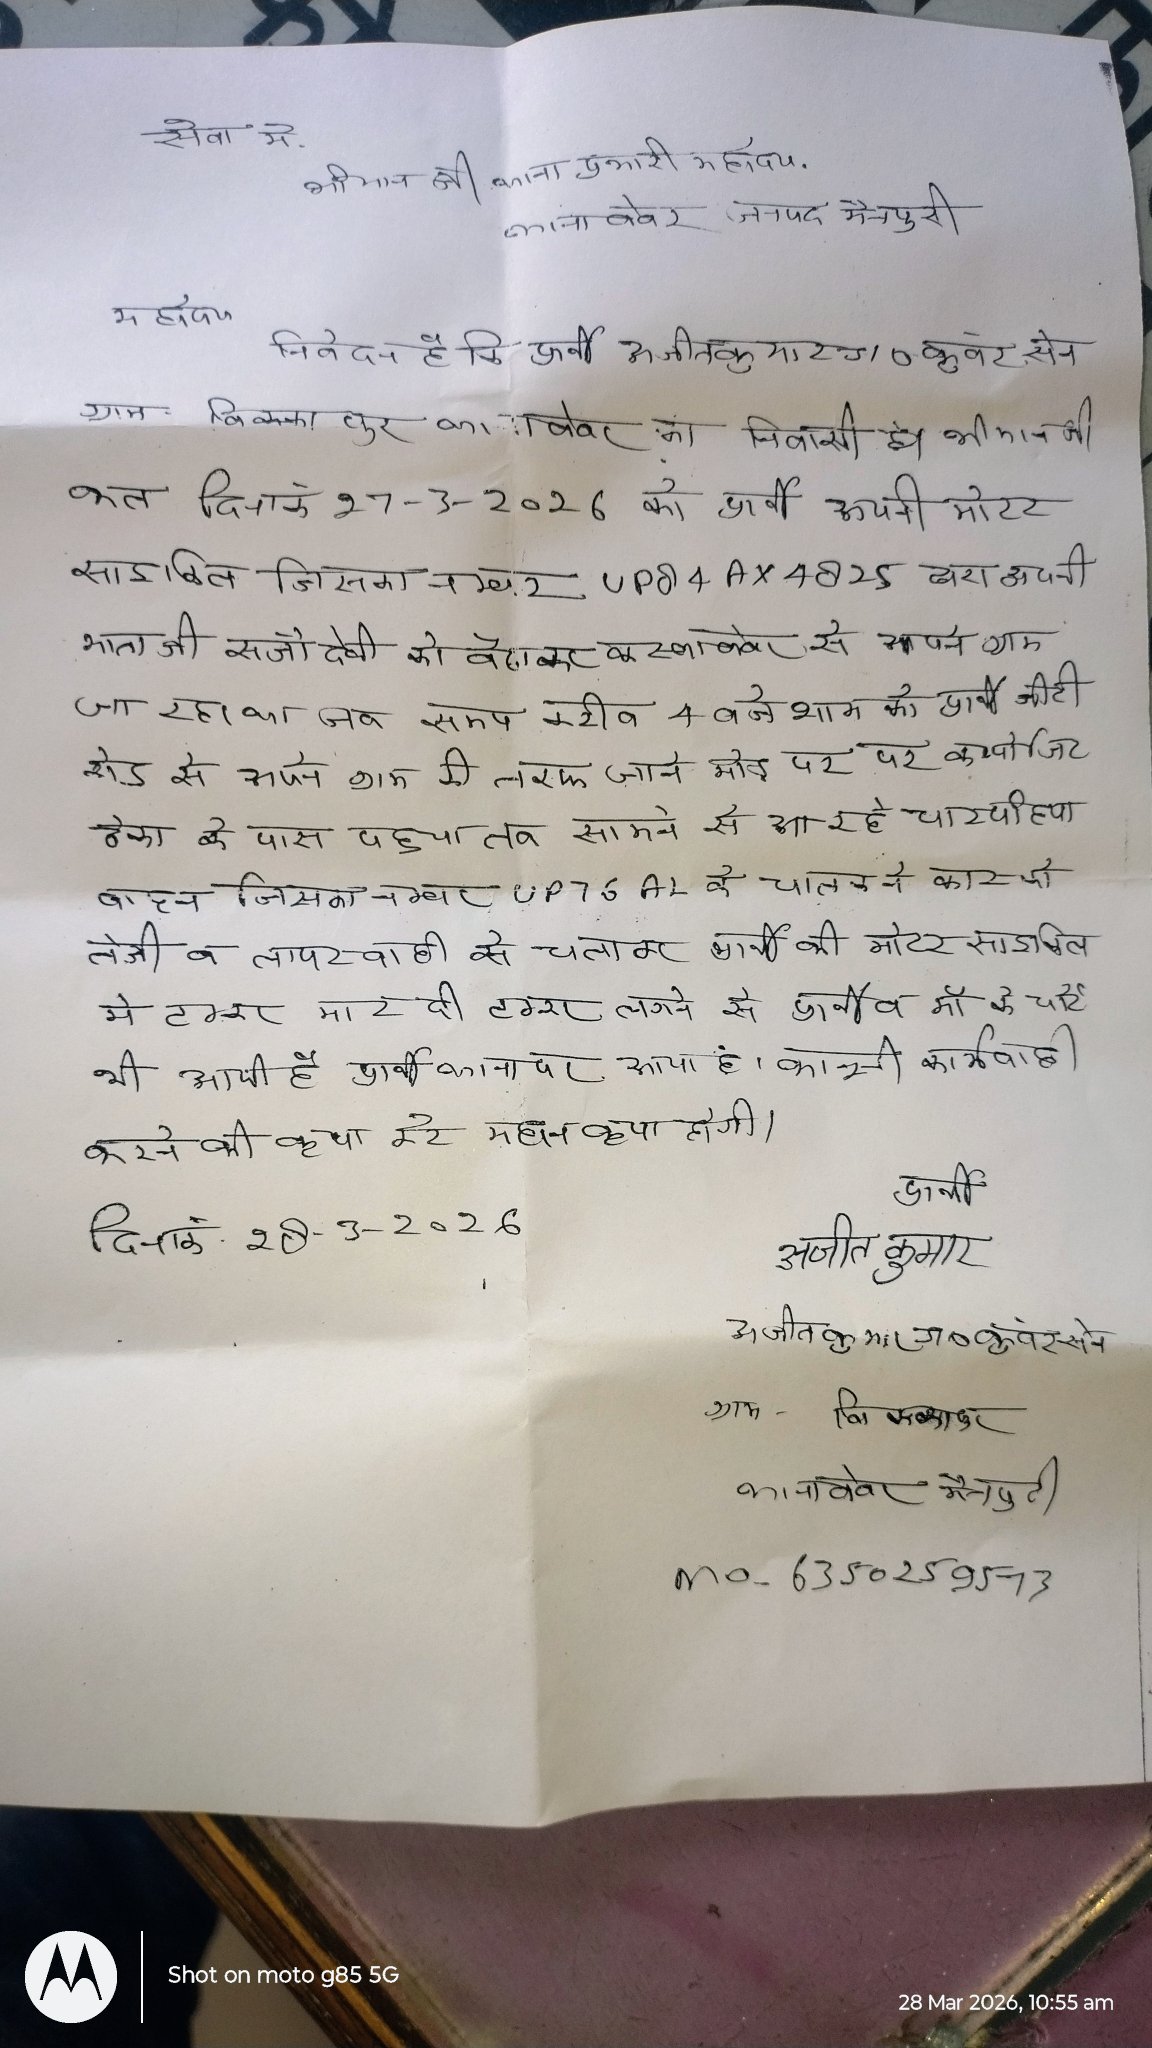 सेवा मे.
श्रीमान जी थाना प्रभारी महोदय.
थाना बेवर जनपद मैनपुरी
महोदय
निवेदन है कि प्रार्थी अजीतकुमार S/0 कुवंर सेन
ग्राम- थाना बेवर का निवासी है। श्रीमान जी
कल दिनाकं 27-3-2026 को प्रार्थी अपनी मोटर
साइकिल जिसका नम्बर UP84 AX 4825 द्वारा अपनी
माता जी देवी को बैठाकर कस्बा बेवर से अपने ग्राम
जा रहा था जब समय करीब 4 बजे शाम को प्रार्थी जीटी
रोड से अपने ग्राम की तरफ जाने मोड़ पर पर कम्पोजिट
ठेका के पास पहुचा तब सामने से आ रहे चारपहिया
वाहन जिसका नम्बर UP76 AL के चालक ने कार को
तेजी व लापरवाही से चलाकर प्रार्थी की मोटर साइकिल
मे टक्कर मार दी टक्कर लगने से प्रार्थी व माँ के चोटे
भी आयी है प्रार्थी थाना पर आया है। कानूनी कार्यवाही
करने की कृपा करे महान कृपा होगी।
प्रार्थी
दिनाकं- 28-3-2026
अजीत कुमार
अजीतकुमार S/0 कुवंरसेन
ग्राम -
थाना बेवर मैनपुरी
MO- 6350259573
Shot on moto g85 5G
28 Mar 2026, 10:55 am